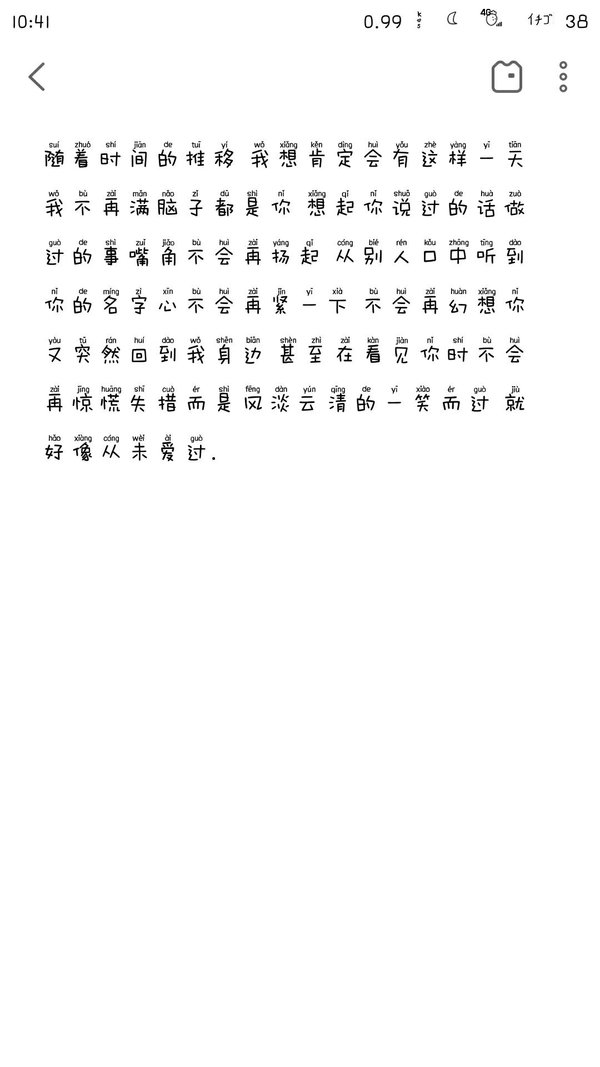 10:41 0.99 K/s 4G ｲﾁｺﾞ 38
suí zhuó shí jiān de tuī yí wǒ xiǎng kěn dìng huì yǒu zhè yàng yī tiān
随着时间的推移 我想肯定会有这样一天
wǒ bù zài mǎn nǎo zǐ dū shì nǐ xiǎng qǐ nǐ shuō guò de huà zuò
我不再满脑子都是你 想起你说过的话做
guò de shì zuǐ jiǎo bù huì zài yáng qǐ cóng bié rén kǒu zhōng tīng dào
过的事嘴角不会再扬起 从别人口中听到
nǐ de míng zì xīn bù huì zài jǐn yī xià bù huì zài huàn xiǎng nǐ
你的名字心不会再紧一下 不会再幻想你
yòu tū rán huí dào wǒ shēn biān shèn zhì zài kàn jiàn nǐ shí bù huì
又突然回到我身边 甚至在看见你时不会
zài jīng huāng shī cuò ér shì fēng dàn yún qīng de yī xiào ér guò jiù
再惊慌失措而是风淡云清的一笑而过 就
hǎo xiàng cóng wèi ài guò
好像从未爱过.